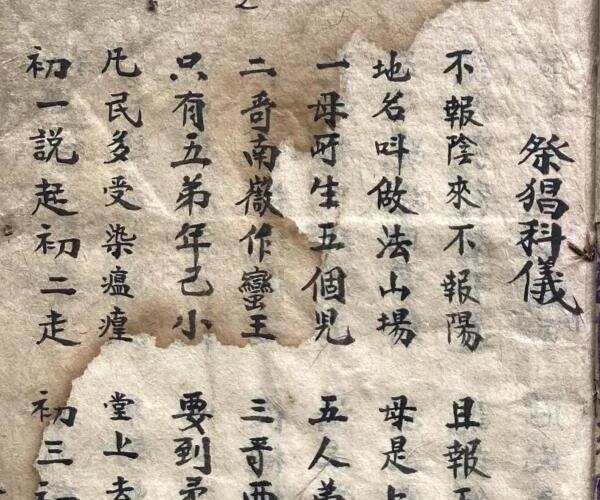 祭猖科儀
不報陰來不報陽 且報
地名呌做法山場 母是
一母所生五個児 五人弟
二哥南嶽作蠻王 三哥西
只有五弟年己小 要到
凢民多受染瘟 堂上
初一説起初二走 初三初